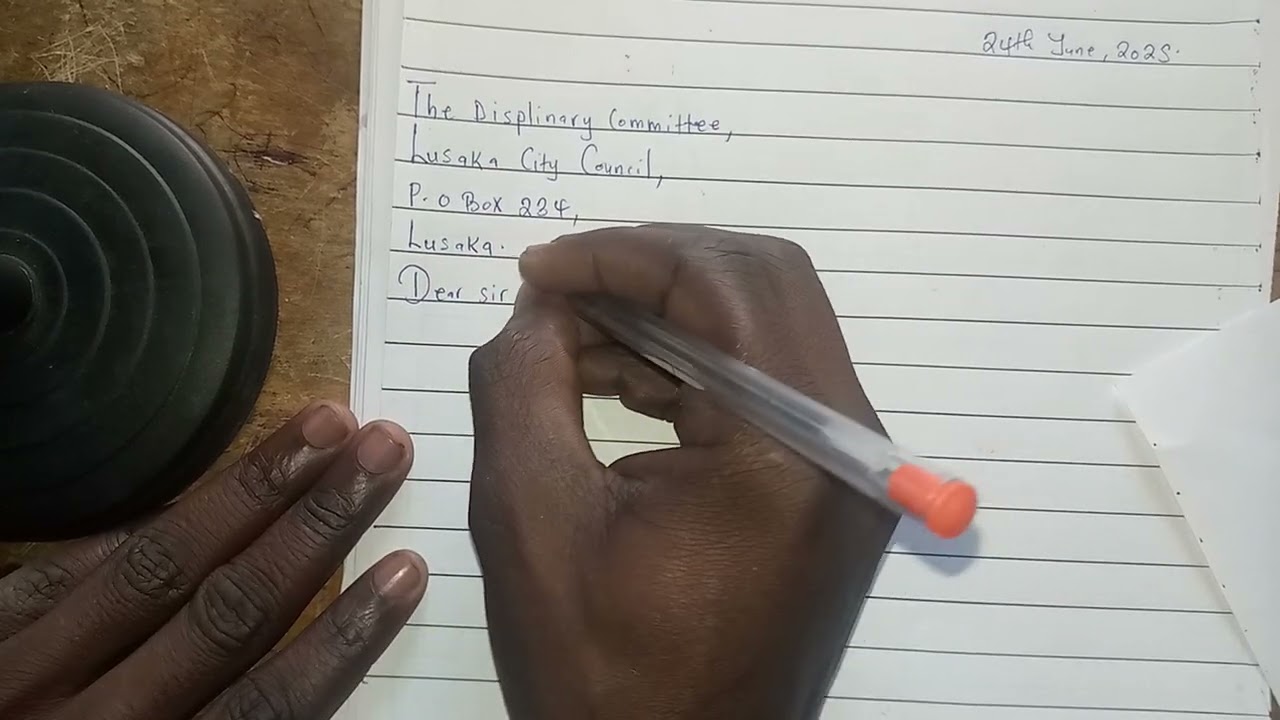 24th June, 2025.
The Displinary Committee,
Lusaka City Council,
P.O Box 234,
Lusaka.
Dear sir